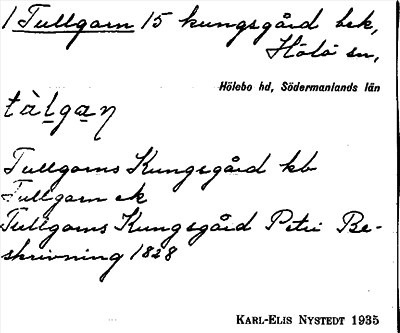 1 Tullgarn 15 kungsgård bek,
Hölö sn,
Hölebo hd, Södermanlands län
tàl̲ga̲ŋ
Tullgarns Kungsgård kb
Tullgarn ek
Tullgarns Kungsgård Petri Be-
skrivning 1828
KARL-ELIS NYSTEDT 1935